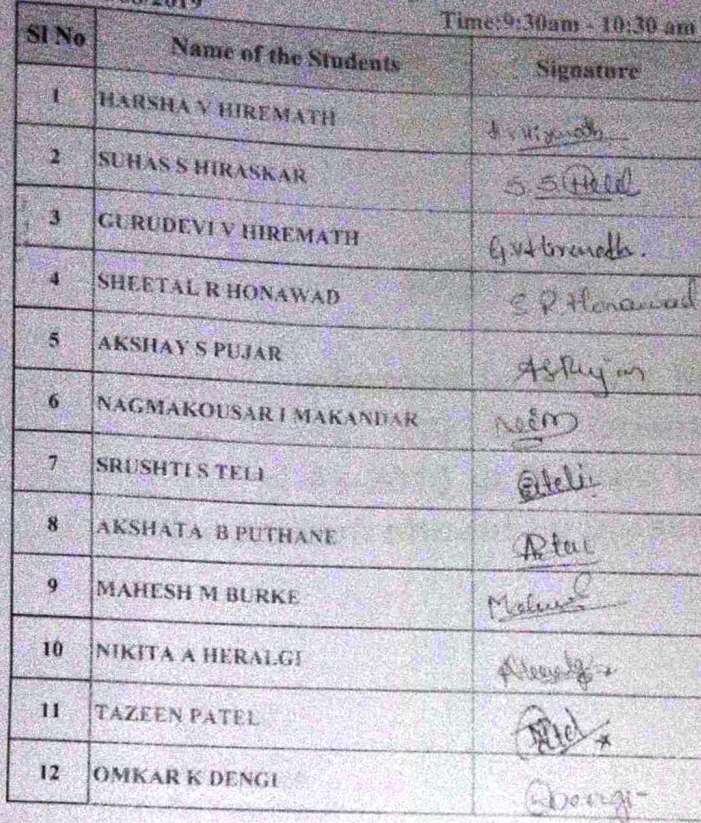 2019
Time:9:30am - 10:30 am
Sl No Name of the Students Signature
1 HARSHA V HIREMATH
2 SUHAS S HIRASKAR S.S
3 GURUDEVI V HIREMATH G.V.Hiremath.
4 SHEETAL R HONAWAD S R Honawad
5 AKSHAY S PUJAR ASPujar
6 NAGMAKOUSAR I MAKANDAR
7 SRUSHTI S TELI
8 AKSHATA B PUTHANE
9 MAHESH M BURKE
10 NIKITA A HERALGI
11 TAZEEN PATEL
12 OMKAR K DENGI